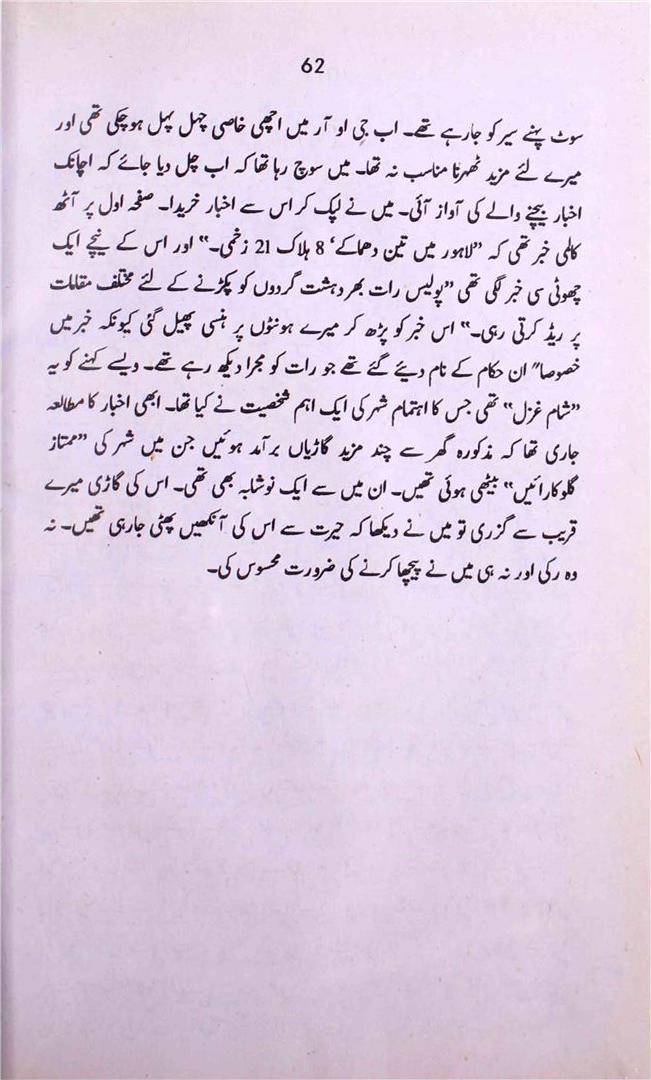 62
سوٹ پہنے سیر کو جا رہے تھے۔ اب جی او آر میں اچھی خاصی چہل پہل ہو چکی تھی اور
میرے لئے مزید ٹھہرنا مناسب نہ تھا۔ میں سوچ رہا تھا کہ اب چل دیا جائے کہ اچانک
اخبار بیچنے والے کی آواز آئی۔ میں نے لپک کر اس سے اخبار خریدا۔ صفحہ اول پر آٹھ
کالمی خبر تھی کہ ”لاہور میں تین دھماکے‘ 8 ہلاک 21 زخمی۔“ اور اس کے نیچے ایک
چھوٹی سی خبر لگی تھی ”پولیس رات بھر دہشت گردوں کو پکڑنے کے لئے مختلف مقامات
پر ریڈ کرتی رہی۔“ اس خبر کو پڑھ کر میرے ہونٹوں پر ہنسی پھیل گئی کیونکہ خبر میں
خصوصا″ ان حکام کے نام دیئے گئے تھے جو رات کو مجرا دیکھ رہے تھے۔ ویسے کہنے کو یہ
”شام غزل“ تھی جس کا اہتمام شہر کی ایک اہم شخصیت نے کیا تھا۔ ابھی اخبار کا مطالعہ
جاری تھا کہ مذکورہ گھر سے چند مزید گاڑیاں برآمد ہوئیں جن میں شہر کی ”ممتاز
گلوکارائیں“ بیٹھی ہوئی تھیں۔ ان میں سے ایک نوشابہ بھی تھی۔ اس کی گاڑی میرے
قریب سے گزری تو میں نے دیکھا کہ حیرت سے اس کی آنکھیں پھٹی جا رہی تھیں۔ نہ
وہ رکی اور نہ ہی میں نے پیچھا کرنے کی ضرورت محسوس کی۔